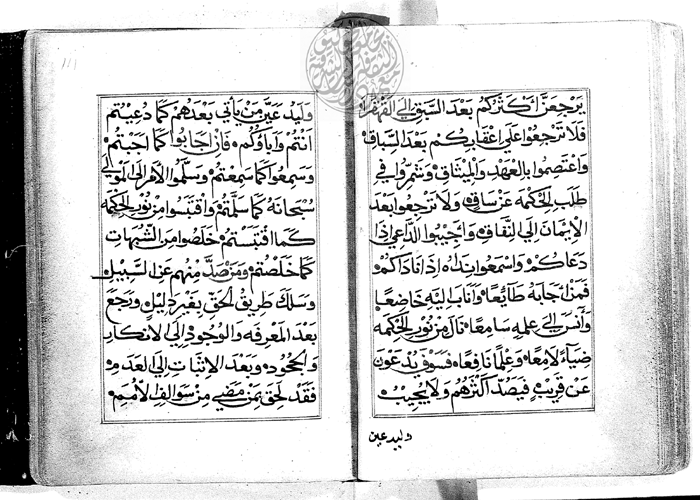 يَرْجِعَنَّ اَكْثَرُكُمْ بَعْدَ السَّبَقِ اِلَى القَهْقَرَا
فَلَا تَرْجِعُوا عَلَى اَعْقَابِكُمْ بَعْدَ السِّبَاقِ
وَاعْتَصِمُوا بِالْعَهْدِ وَالْمِيْثَاقِ وَشَمِّرُوا فِي
طَلَبِ الحِكْمَةِ عَنْ سَاقٍ وَلَا تَرْجِعُوا بَعْدَ
الْاِيْمَانِ اِلَى النِّفَاقِ وَاَجِيْبُوا الدَّاعِيَ اِذَا
دَعَاكُمْ وَاسْمَعُوا نِدَاهُ اِذَا نَادَاكُمْ
فَمَنْ اَجَابَهُ طَآئِعًا وَاَنَابَ اِلَيْهِ خَاضِعًا
اِلَى عِلْمِهِ سَامِعًا نَالَ مِنْ نُوْرِ الحِكْمَه
ضِيَآءً لَامِعًا وَعِلْمًا نَافِعًا فَسَوْفَ يُدْعَوْنَ
عَنْ قَرِيْبٍ فَيَصُدُّ اَكْثَرُهُمْ وَلَا يُجِيْبُ
وليدعين
وَلَيُدْعَيَنَّ مَنْ يَأتي بَعْدَهُمْ كَمَا دُعِيْتُمْ
اَنْتُمْ وَاٰبَاؤُكُمْ فَاِنْ اَجَابُوا كَمَا اَجَبْتُمْ
وَسَمِعُوا كَمَا سَمِعْتُمْ وَسَلَّمُوا الْأَمْرَ اِلَى المَوْلَى
سُبْحَانَهُ كَمَا سَلَّمْتُمْ وَاقْتَبَسُوا مِنْ نُوْرِ الحِكْمَةِ
كَمَا اقْتَبَسْتُمْ خَلَصُوا مِنَ الشُّبُهَاتِ
كَمَا خَلَصْتُمْ وَمَنْ صَدَّ مِنْهُمْ عَنِ السَّبِيْلِ
وَسَلَكَ طَرِيْقَ الحَقِّ بِغَيْرِ دَلِيْلٍ وَرَجَعَ
بَعْدَ المَعْرِفَه وَالْوُجُوْدِ اِلَى الْاِنْكَارِ
وَالجُحُوْدِ وَبَعْدَ الْاِثْبَاتِ اِلَى العَدَمِ
فَقَدْ لَحِقَ بِمَنْ مَضَى مِنْ سَوَالِفِ الْاُمَمِ